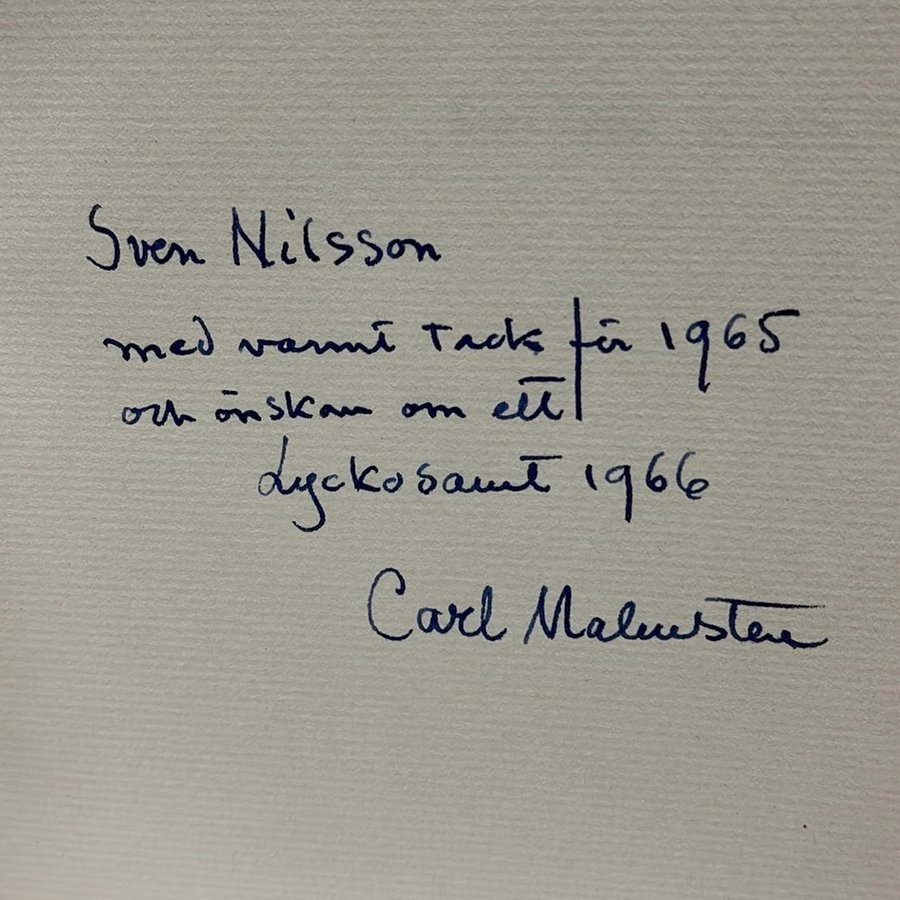 Sven Nilsson
med varmt tack för 1965
och önskan om ett
Lyckosamt 1966
Carl Malmsten